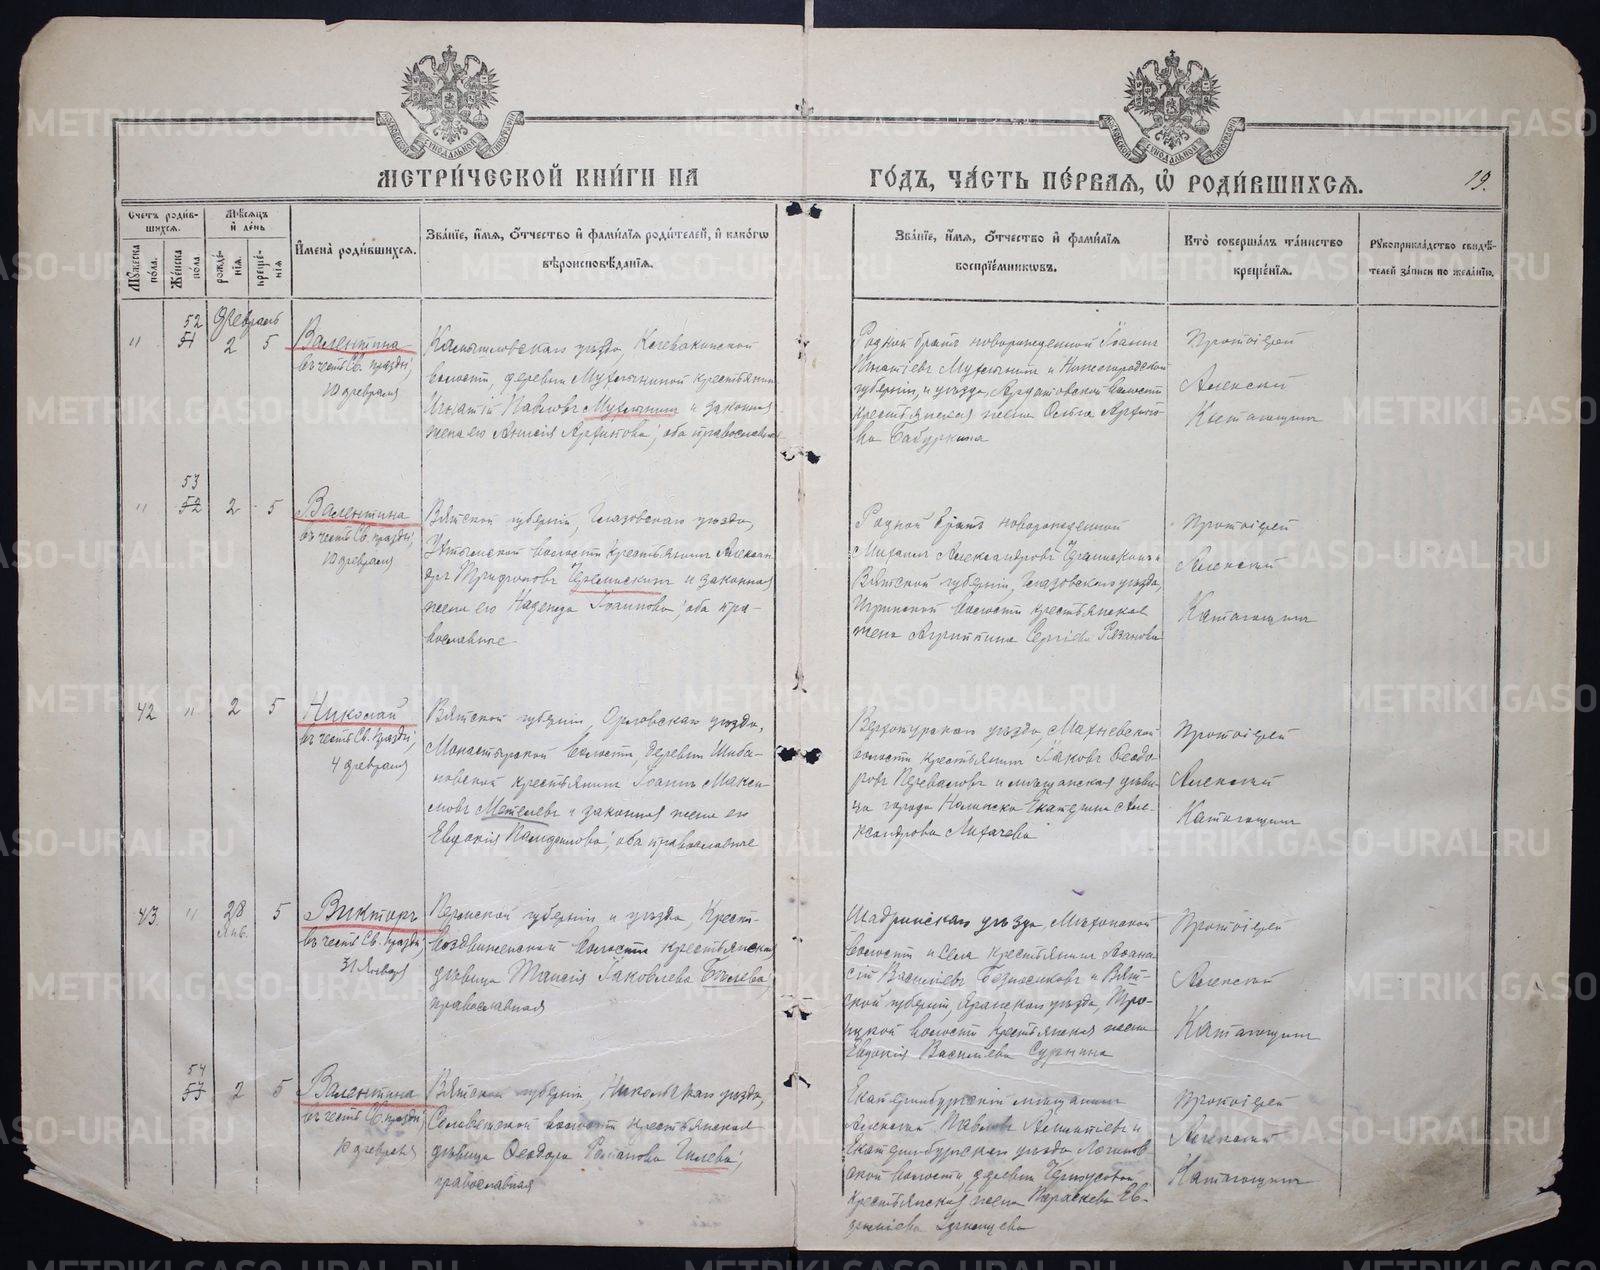 МЕТРИ́ЧЕСКОЙ КНИ́ГИ НА ГО́ДЪ, ЧА́СТЬ ПЕ́РВАЯ, Ѡ РОДИ́ВШИХСЯ.
19.
Счетъ роди́в-
шихся.
Мѣ́сяцъ
и҆ де́нь
Му́жеска по́ла.
Же́нска по́ла.
рожде́-
нїя.
креще́-
нїя
И҆мена̀ роди́вшихся.
Зва́нїе, и҆́мя, ѻ҆́тчество и҆ фами́лїѧ роди́телей, и҆ како́гѡ
вѣроисповѣ́данїѧ.
Зва́нїе, и҆́мя, ѻ҆́тчество и҆ фами́лїѧ
воспрїе́мникѡвъ.
Кто̀ соверша́лъ та́инство
креще́нїѧ.
Рꙋкоприкла́дство свидѣ́-
телей за́писи по жела́нїю.
Февраль
" 52 51 2 5
Валентина
въ честь Св. праздн;
10 февраля
Камышловскаго уѣзда,
волости, деревни крестьянинъ
Игнатій Павловъ и законная
жена его Анисія; оба православные
Родной братъ новорожденной Іоаннъ
Игнатіевъ и Нижегородской
губерніи, и уѣзда, волости
крестьянская жена Ольга
Бабуркина
Протоіерей
Алексій
Катагощинъ
" 53 52 2 5
Валентина
въ честь Св. праздн;
10 февраля
Вятской губерніи, Глазовскаго уѣзда,
волости крестьянинъ Алексан-
дръ Трифоновъ и законная
жена его Надежда Іоаннова; оба пра-
вославные
Родной братъ новорожденной
Михаилъ Александровъ и
Вятской губерніи, Глазовскаго уѣзда,
Игринской волости крестьянская
жена Агриппина Рязанова
Протоіерей
Алексій
Катагощинъ
42 " 2 5
Николай
въ честь Св. праздн;
4 февраля
Вятской губерніи, Орловскаго уѣзда,
Монастырской волости, деревни Шиба-
новской крестьянинъ Іоаннъ Макси-
мовъ Метелевъ и законная жена его
Евдокія; оба православные
Верхотурскаго уѣзда, Махневской
волости крестьянинъ Іаковъ Ѳеодо-
ровъ Переваловъ и мѣщанская дѣви-
ца города Нолинска Екатерина Але-
ксандрова Лихачева
Протоіерей
Алексій
Катагощинъ
43 " 28 Янв. 5
Викторъ
въ честь Св. праздн;
31 Января
Пермской губерніи и уѣзда, Кресто-
воздвиженской волости крестьянская
дѣвица Таисія Іаковлева;
православная
Шадринскаго уѣзда, Мѣхонской
волости и села крестьянинъ Аѳана-
сій Васильевъ Безносиковъ и Вят-
ской губерніи, Яранскаго уѣзда, Тро-
ицкой волости крестьянская жена
Евдокія Васильева Сурнина
Протоіерей
Алексій
Катагощинъ
54 53 2 5
Валентина
въ честь Св. праздн;
10 февраля
Вятской губерніи, уѣзда,
волости крестьянская
дѣвица Ѳеодора Романова Гилева;
православная
Екатеринбургскій мѣщанинъ
Алексій Павловъ и
Екатеринбургскаго уѣзда Логинов-
ской волости, деревни Черноусовой
крестьянская жена Параскева Ев-
Протоіерей
Алексій
Катагощинъ
METRIKI.GASO-URAL.RU